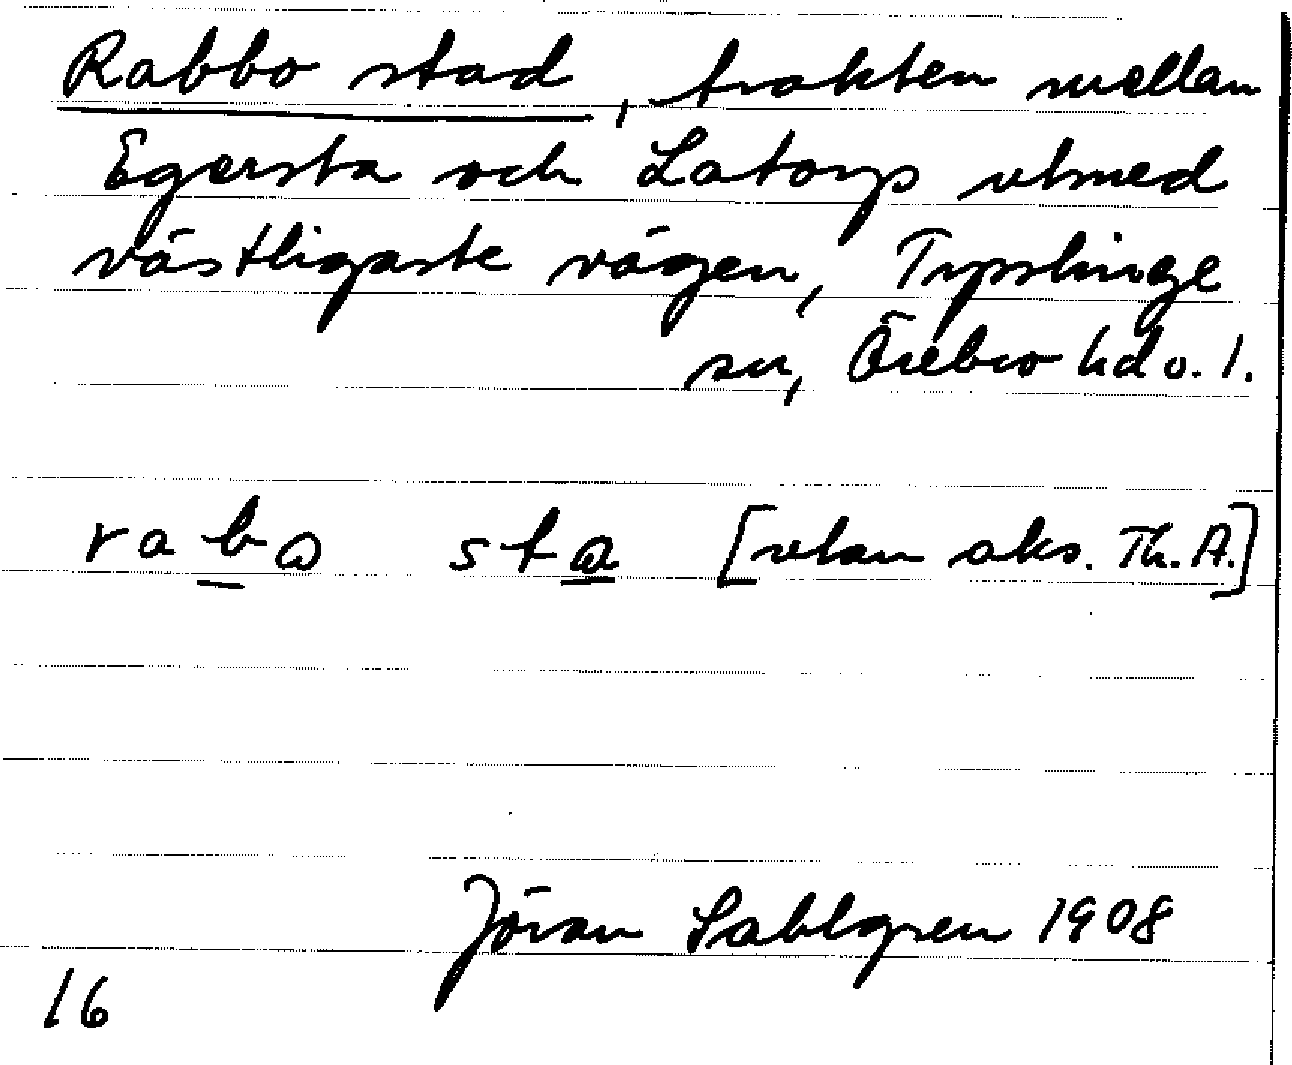 Rabbo stad, trakten mellan
Egersta och Latorp utmed
västligaste vägen, Tysslinge
sn, Örebro hd o. l.
rabɷ sta [utan aks. Th. A.]
Jöran Sahlgren 1908
16